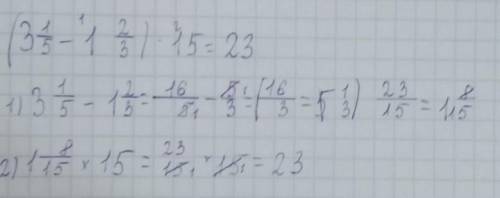 (3 1/5 - 1 2/3) · 15 = 23
1) 3 1/5 - 1 2/3 = 16/5 - 5/3 = (16/3 = 5 1/3) 23/15 = 1 8/15
2) 1 8/15 × 15 = 23/15 × 15 = 23